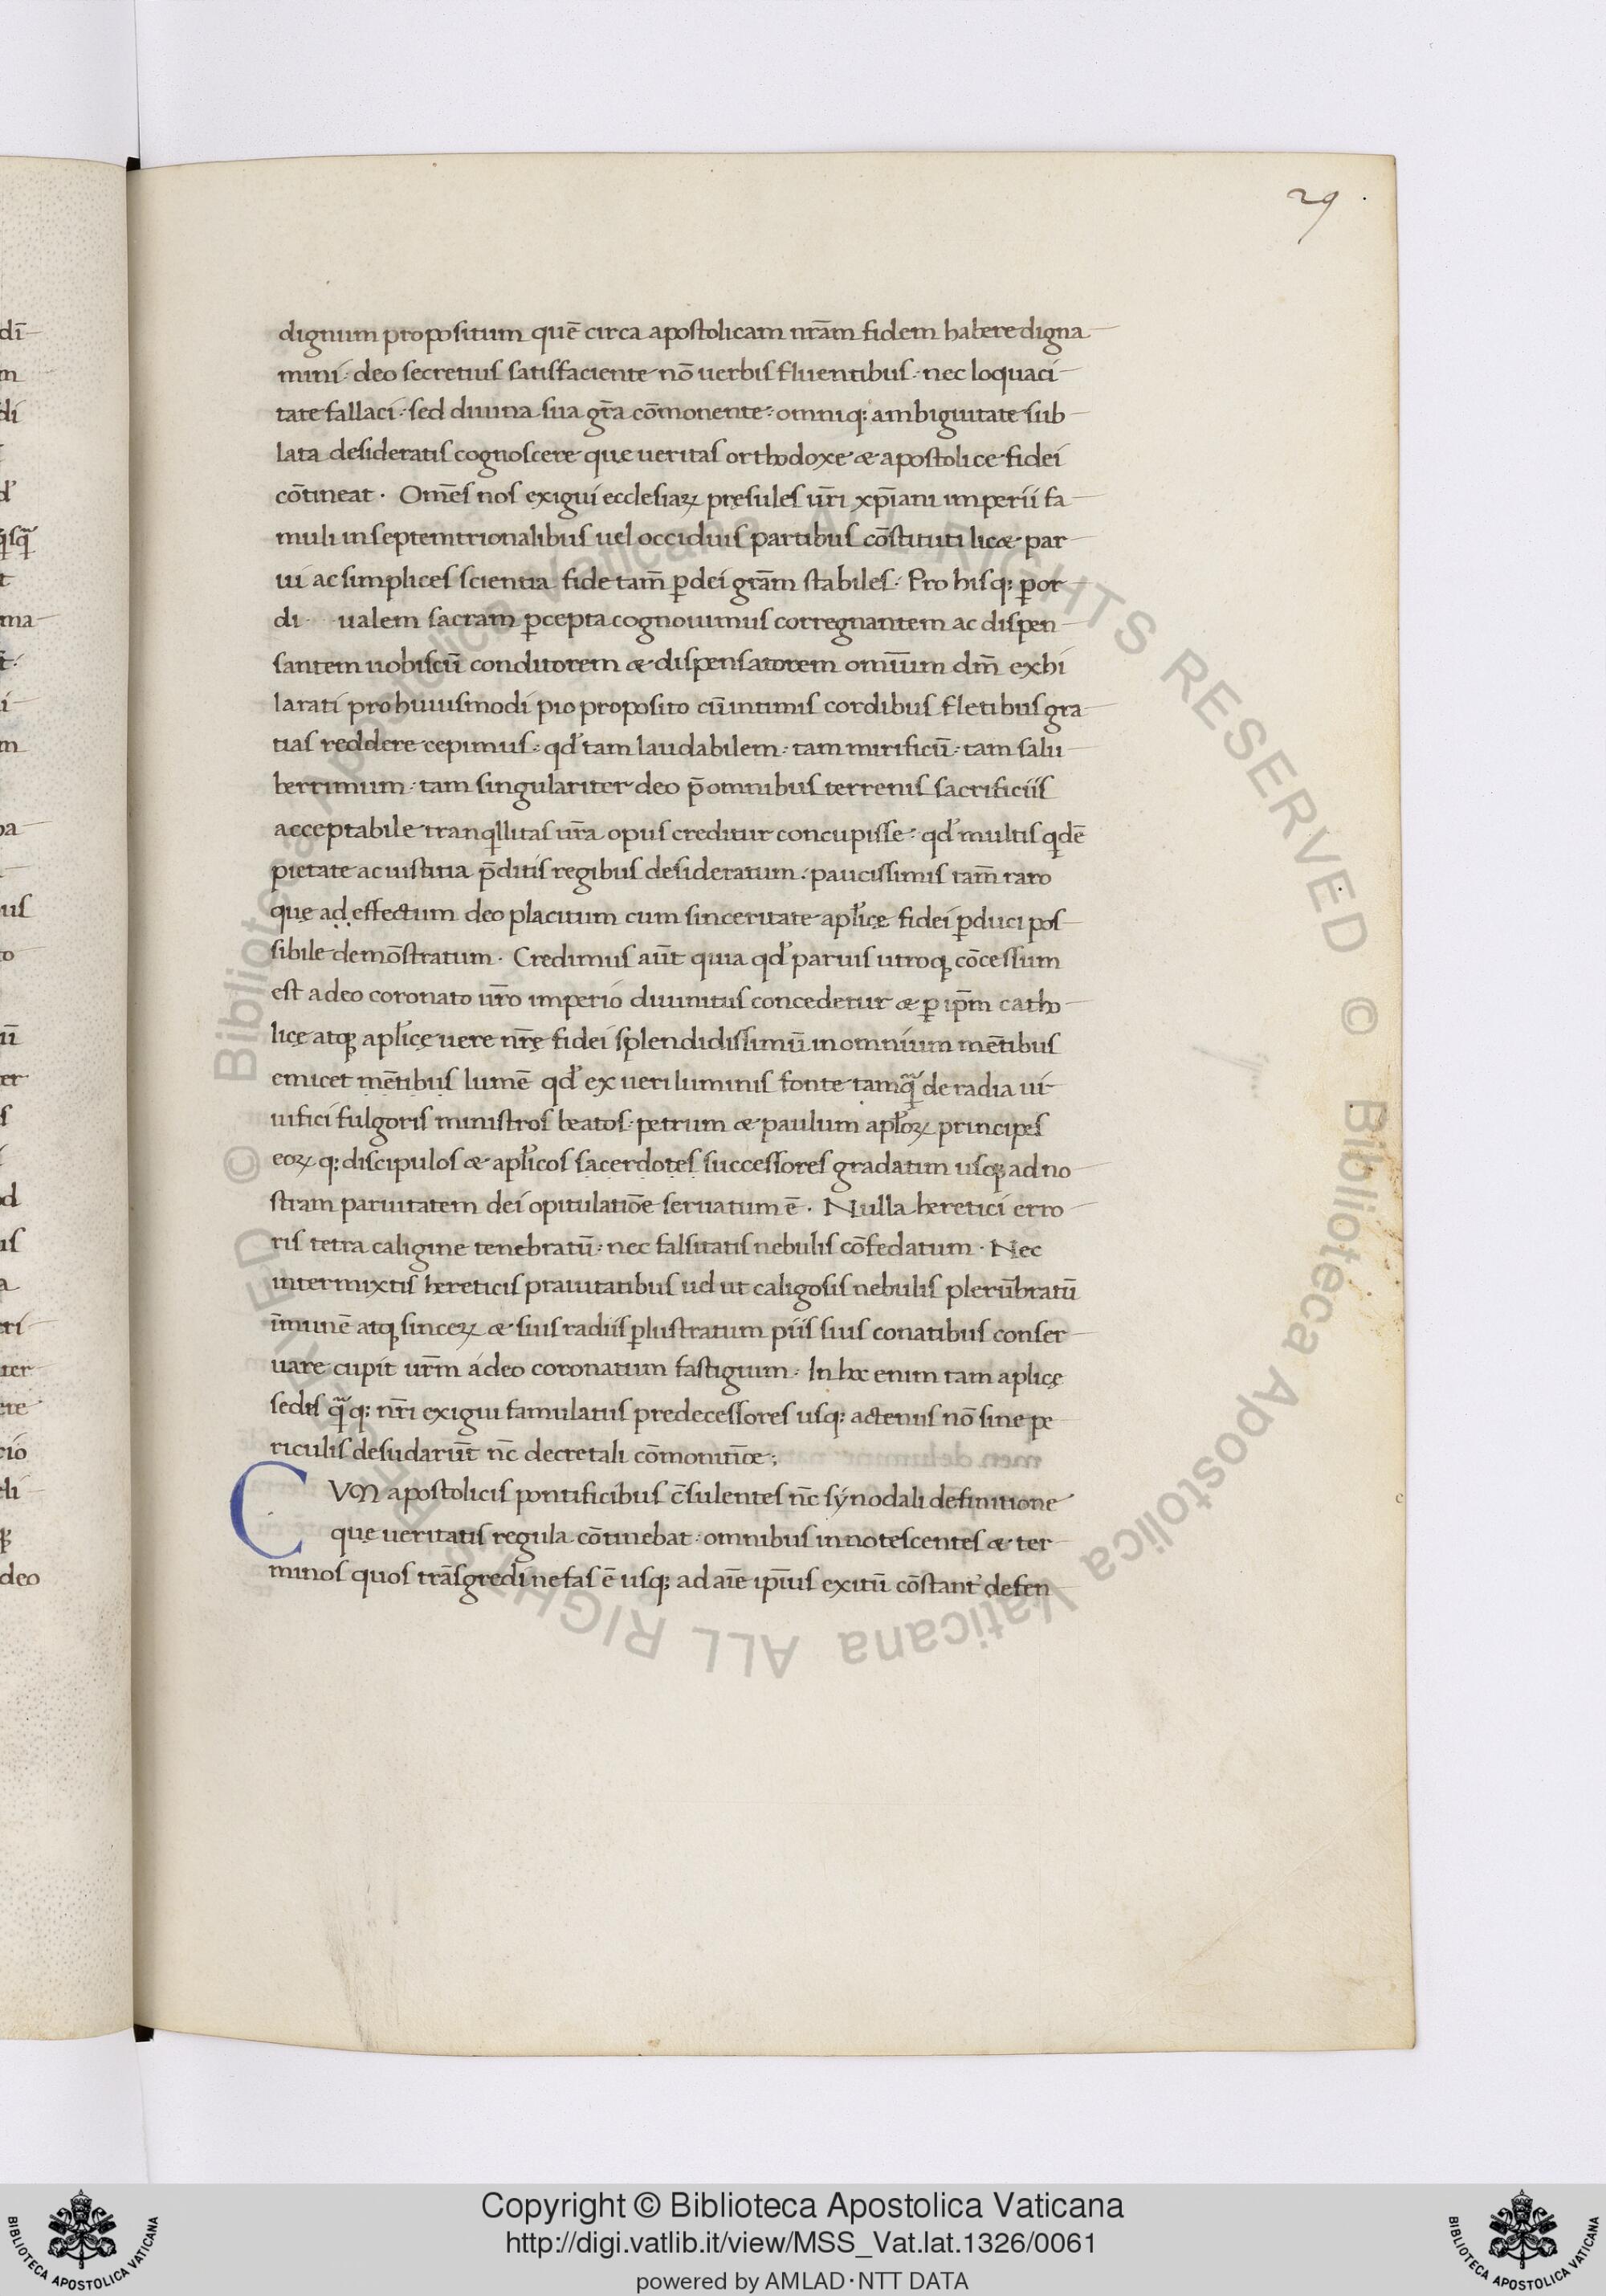 29
dignum propositum quē circa apostolicam nr̄am fidem habere digna
mini· deo secretius satisfaciente nō uerbis fluentibus· nec loquaci
tate fallaci· sed diuina sua gr̄a cōmonente· omniq; ambiguitate sub
lata desideratis cognoscere que ueritas orthodoxe & apostolice fidei
cōtineat· Omēs nos exigui ecclesiaꝝ pręsules ur̄i xp̄iani imperii fa
muli in septemtrionalibus uel occiduis partibus cōstituti lic& par
ui ac simplices scientia fide tam̄ ꝑ dei gr̄am stabiles· Pro hisq; ꝑ or
di ualem sacram ꝑcepta cognouimus corregnantem ac dispen
santem uobiscū conditorem & dispensatorem omīum dm̄ exhi
larati pro huiusmodi pio proposito cū intimis cordibus fletibus gra
tias reddere cepimus· qd' tam laudabilem· tam mirificū· tam salu
berrimum· tam singulariter deo p̄ omnibus terrenis sacrificiis
acceptabile tranqllitas ur̄a opus creditur concupisse· qd' multis qdē
pietate ac iustitia p̄ditis regibus desideratum· paucissimis tam̄ raro
quę ad effectum deo placitum cum sinceritate apl'icę fidei ꝑduci pos
sibile demōstratum· Credimus aūt quia qd' paruis utroq; cōcessum
est a deo coronato ur̄o imperio diuinitus concedetur & ꝑ ip̄m catho
licę atq; apl'icę uere nr̄ę fidei splendidissimū in omnium mētibus
emicet mētibus lumē qd' ex ueri luminis fonte tamq̄ de radia ui
uifici fulgoris ministros beatos· petrum & paulum apl'oꝝ principes
eoꝝ q; discipulos & apl'icos sacerdotes successores gradatim usq; ad no
stram paruitatem dei opitulatiōe seruatum ē· Nulla heretici erro
ris tetra caligine tenebratū· nec falsitatis nebulis cōfedatum· Nec
intermixtis hereticis prauitatibus ud ut caligosis nebulis plerūbratū
īmunē atq; sinceꝝ & suis radiis ꝑlustratum piis suis conatibus conser
uare cupit ur̄m á deo coronatum fastigium· In hoc enim tam aplicę
sedis q̄q; nr̄i exigui famulatus predecessores usq; actenus nō sine pe
riculis desudarūt nc̄ decretali cōmonitiōe;
CVM apostolicis pontificibus c̄sulentes nc̄ sýnodali definitione
quę ueritatis regula cōtinebat· omnibus innotescentes & ter
minos quos trāsgredi nefas ē usq; ad aīe ip̄ius exitū cōstant' defen
Copyright © Biblioteca Apostolica Vaticana
http://digi.vatlib.it/view/MSS_Vat.lat.1326/0061
powered by AMLAD·NTT DATA
BIBLIOTECA APOSTOLICA VATICANA
BIBLIOTECA APOSTOLICA VATICANA
© Biblioteca Apostolica Vaticana ALL RIGHTS RESERVED © Biblioteca Apostolica Vaticana ALL RIGHTS RESERVED